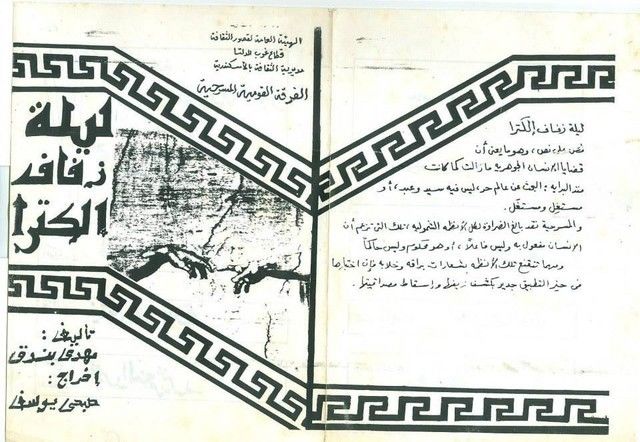 الهيئة العامة لقصور الثقافة
قطاع غرب الدلتا
مديرية الثقافة بالأسكندرية
الفرقة القومية المسرحية
ليلة
زفاف
الكترا
تأليف :
مهدى بندق
إخراج :
حلمى يوسف
ليلة زفاف إلكترا
نص على نص ، وهو ما يعنى أن
قضايا الإنسان الجوهرية مازالت كما كانت
منذ البداية : البحث عن عالم حر ليس فيه سيد وعبد ، أو
مستغِل ومستغَل .
والمسرحية نقد بالغ الضراوة لكل الأنظمة الشمولية ، تلك التى تزعم أن
الإنسان مفعول به وليس فاعلاً ، أو هو محكوم وليس حاكماً
ومهما تتقنع تلك الأنظمة بشعارات براقة وخلابة فإن اختبارها
فى حيز التطبيق جدير بكشف زيفها وإسقاط مصداقيتها .